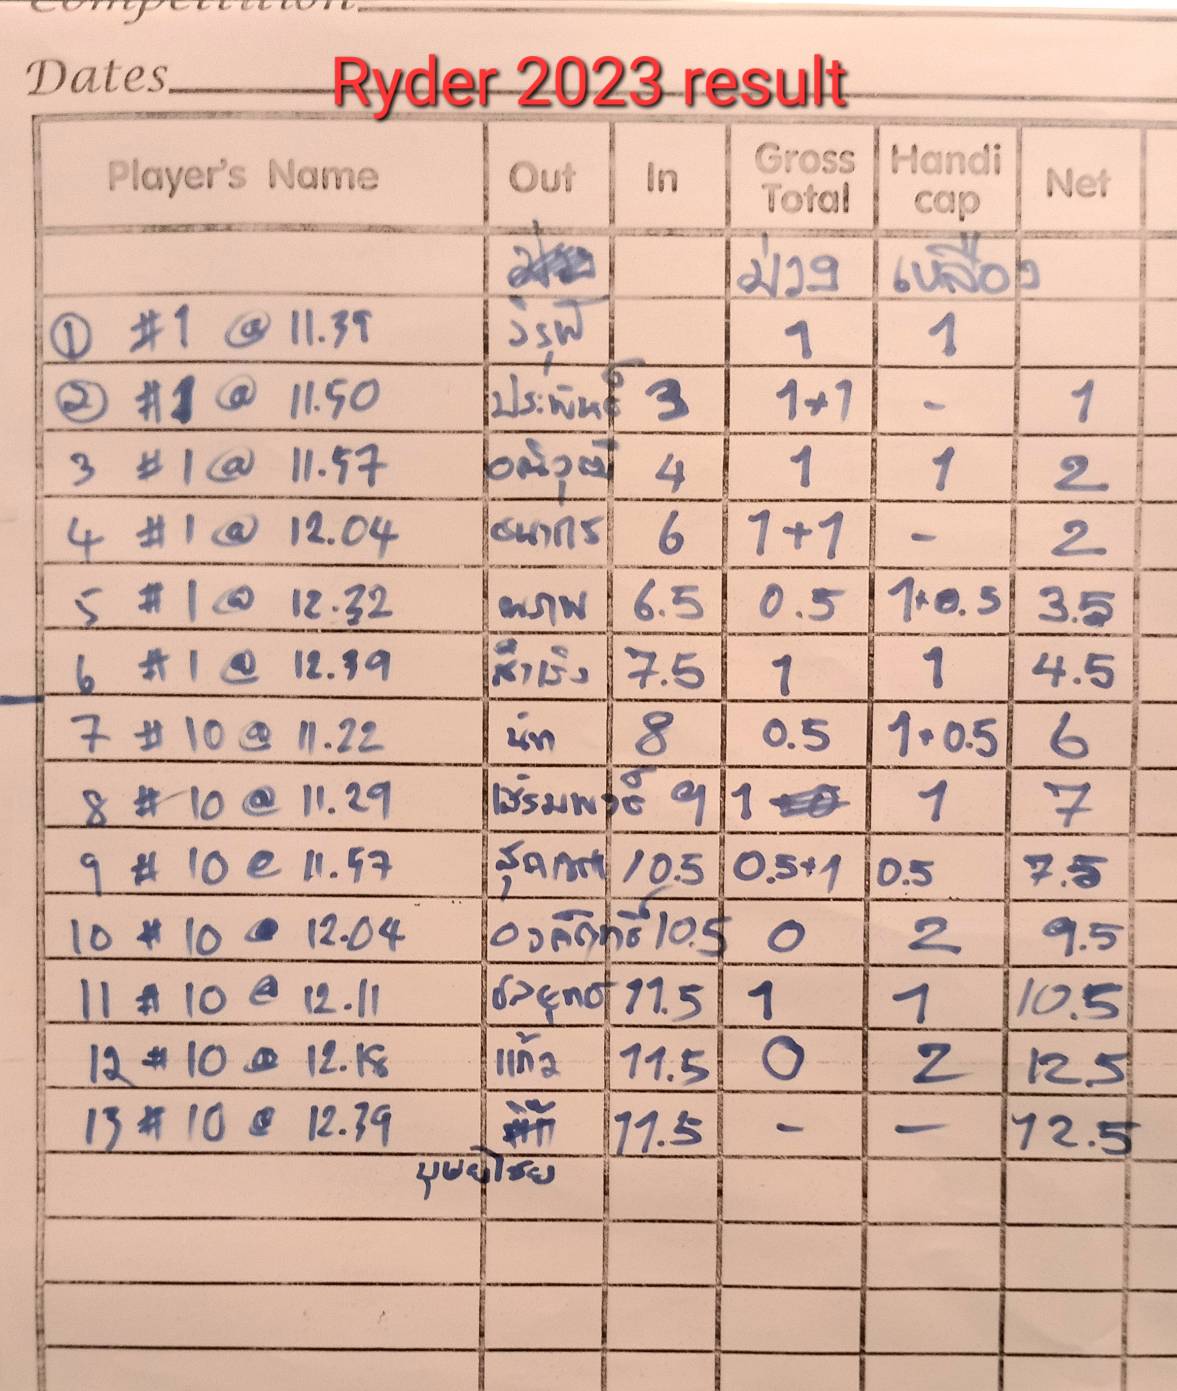 Competition
Dates Ryder 2023 result
Player's Name Out In Gross Total Handi cap Net
ม่วง เหลือง
① #1 @ 11.39 วิรุฬ 1 1
② #1 @ 11.50 ประพันธ์ 3 1+1 - 1
3 #1 @ 11.57 4 1 1 2
4 #1 @ 12.04 ธนากร 6 1+1 - 2
5 #1 @ 12.32 นภพ 6.5 0.5 1+0.5 3.5
6 #1 @ 12.39 สำเริง 7.5 1 1 4.5
7 #10 @ 11.22 นัท 8 0.5 1+0.5 6
8 #10 @ 11.29 9 1 1 7
9 #10 @ 11.57 10.5 0.5+1 0.5 7.5
10 #10 @ 12.04 10.5 0 2 9.5
11 #10 @ 12.11 ชลยุทธ 11.5 1 1 10.5
12 #10 @ 12.18 แก้ว 11.5 0 2 12.5
13 #10 @ 12.39 11.5 - - 12.5